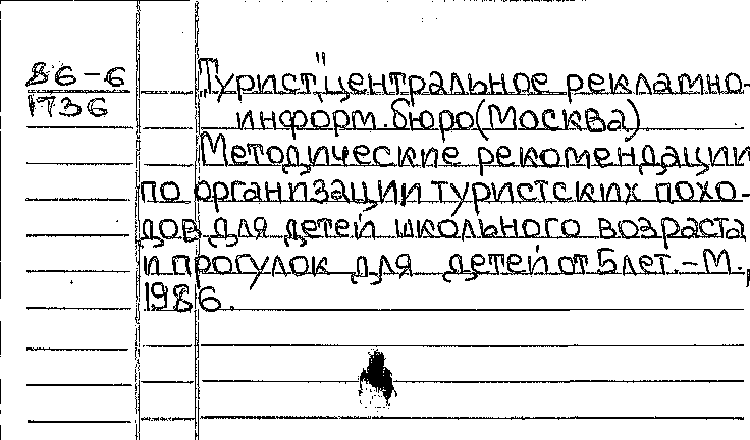 86-6
1736
"Турист", центральное рекламно-
информ. бюро (Москва)
Методические рекомендации
по организации туристских похо-
дов для детей школьного возраста
и прогулок для детей от 5 лет. - М.,
1986.